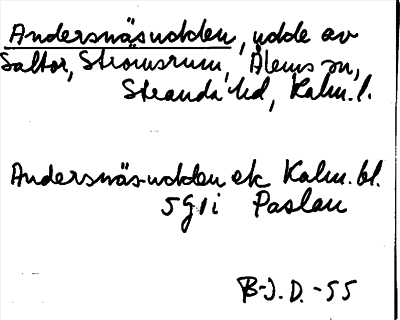 Andersnäsudden, udde av
Saltor, Strömsrum, Ålems sn,
Stranda hd, Kalm. l.
Andersnäs-udden ek Kalm. bl.
5g1i Paslau
B-J.D. -55